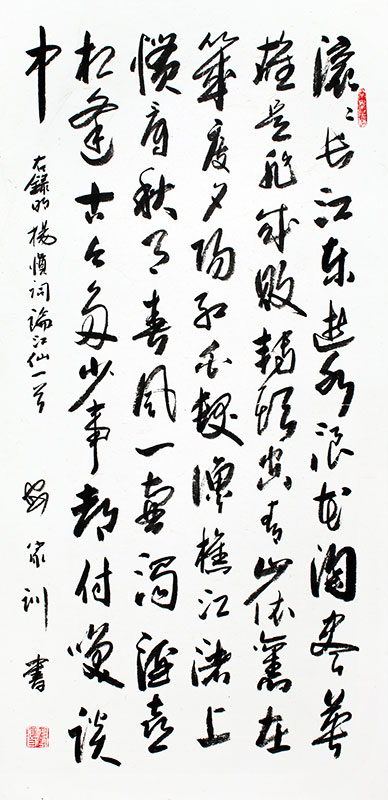 滚滚长江东逝水浪花淘尽英
雄是非成败转头空青山依舊在
几度夕阳红白髮漁樵江渚上
惯看秋月春风一壶濁酒喜
相逢古今多少事都付笑谈
中
右録明楊慎词临江仙一首
家训書